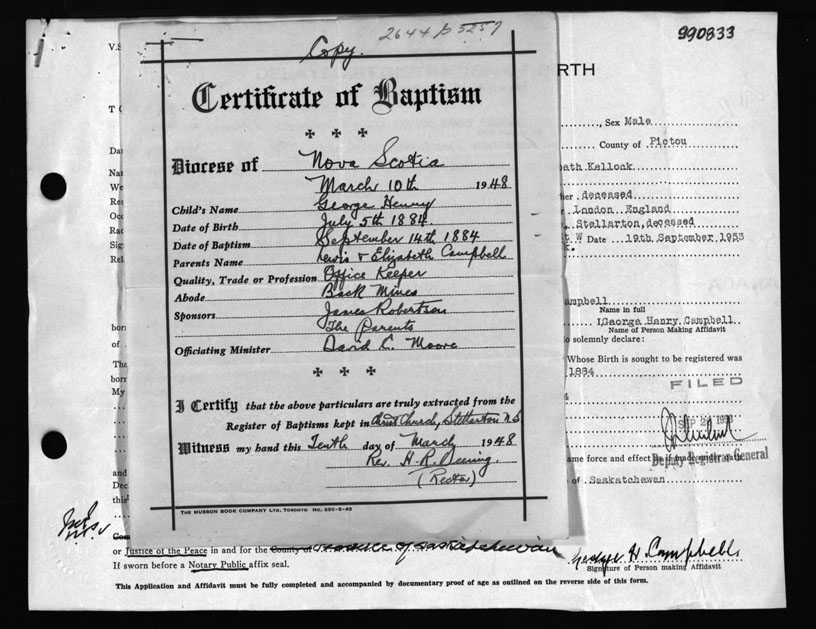 2644 p 5257
990833
Copy.
V.S
RTH
Certificate of Baptism
T C
, Sex Male
County of Pictou
Diocese of Nova Scotia
eth Kellock
March 10th 1948
Child's Name George Henry
deceased
Date of Birth July 5th 1884.
London England
Stellarton, deceased
Date of Baptism September 14th 1884
Date 19th September 1953
Parents Name Lewis & Elizabeth Campbell
Quality, Trade or Profession Office Keeper
Abode Back Mines
Sponsors James Robertson
The Parents
Officiating Minister David C. Moore
ampbell
Name in full
I, George Henry Campbell
Name of Person Making Affidavit
o solemnly declare:
Whose Birth is sought to be registered was
1884
FILED
I Certify that the above particulars are truly extracted from the
Register of Baptisms kept in Christ Church, Stellarton N.S
Witness my hand this Tenth day of March 1948
Rev. H. R. Deering.
(Rector)
Deputy Registrar General
of Saskatchewan
THE MUSSON BOOK COMPANY LTD, TORONTO NO, 250-5-43
or Justice of the Peace in and for the County of Province of Saskatchewan
George H Campbell
Signature of Person making Affidavit
If sworn before a Notary Public affix seal.
This Application and Affidavit must be fully completed and accompanied by documentary proof of age as outlined on the reverse side of this form.